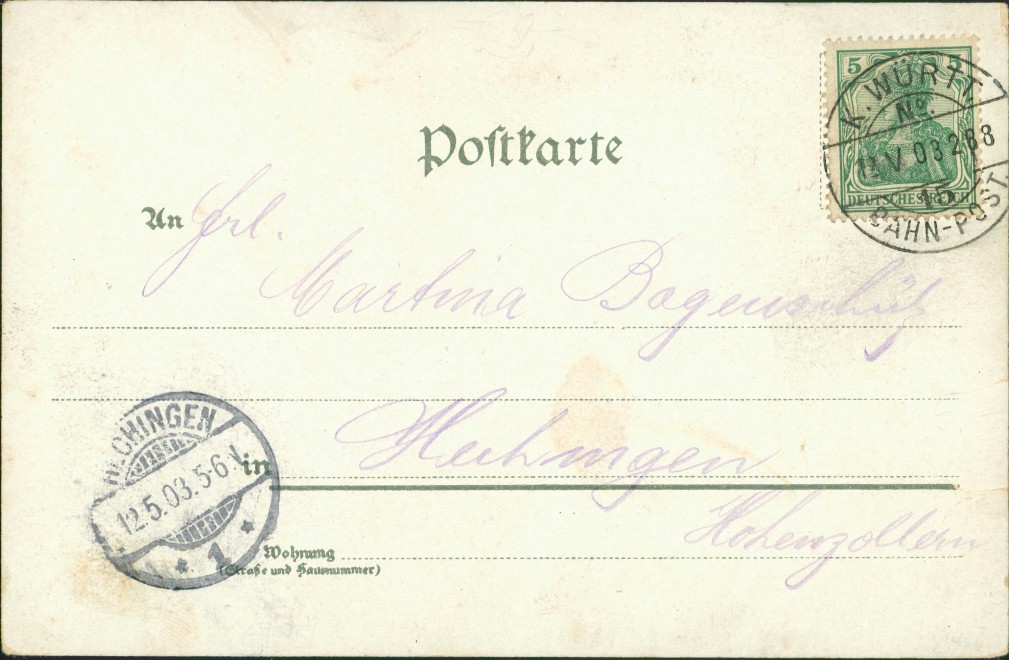 Postkarte
5 5
DEUTSCHES REICH
K. WÜRTT.
No.
V 03 288
15
BAHN-POST
An Frl.
Martina Bogenschütz
in Hechingen
Hohenzollern
Wohnung
(Straße und Hausnummer)
HECHINGEN
12.5.03. 5-6 V.
* 1 *